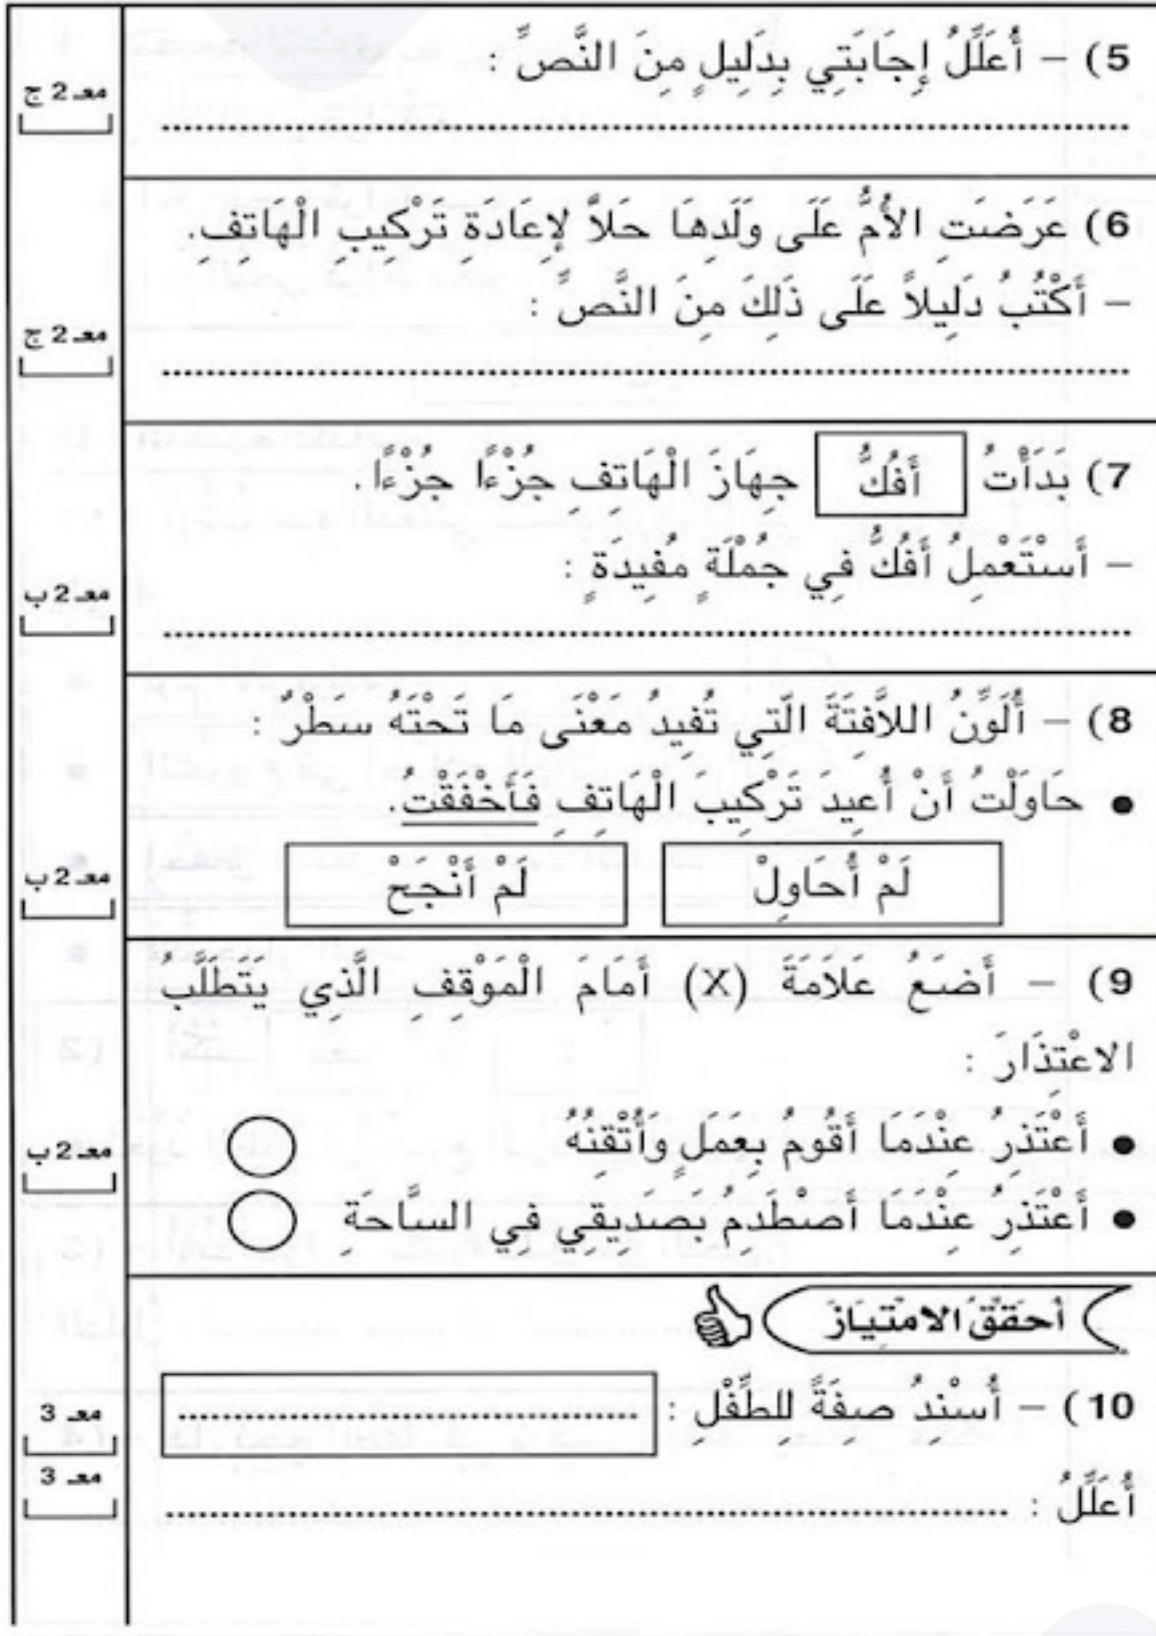 5) – أُعَلِّلُ إِجَابَتِي بِدَلِيلٍ مِنَ النَّصِّ :
معـ 2 ج
................................................
6) عَرَضَتِ الأُمُّ عَلَى وَلَدِهَا حَلاًّ لِإِعَادَةِ تَرْكِيبِ الْهَاتِفِ.
– أَكْتُبُ دَلِيلاً عَلَى ذَلِكَ مِنَ النَّصِّ :
معـ 2 ج
................................................
7) بَدَأْتُ أَفُكُّ جِهَازَ الْهَاتِفِ جُزْءًا جُزْءًا.
– أَسْتَعْمِلُ أَفُكُّ فِي جُمْلَةٍ مُفِيدَةٍ :
معـ 2 ب
................................................
8) – أُلَوِّنُ اللاَّفِتَةَ الَّتِي تُفِيدُ مَعْنَى مَا تَحْتَهُ سَطْرٌ :
● حَاوَلْتُ أَنْ أُعِيدَ تَرْكِيبَ الْهَاتِفِ فَأَخْفَقْتُ.
لَمْ أُحَاوِلْ لَمْ أَنْجَحْ
معـ 2 ب
9) – أَضَعُ عَلاَمَةَ (X) أَمَامَ الْمَوْقِفِ الَّذِي يَتَطَلَّبُ
الاعْتِذَارَ :
● أَعْتَذِرُ عِنْدَمَا أَقُومُ بِعَمَلٍ وَأُتْقِنُهُ
معـ 2 ب
● أَعْتَذِرُ عِنْدَمَا أَصْطَدِمُ بِصَدِيقِي فِي السَّاحَةِ
أُحَقِّقُ الامْتِيَازَ
10) – أُسْنِدُ صِفَةً لِلطِّفْلِ : ................................
معـ 3
معـ 3
أُعَلِّلُ : ................................................